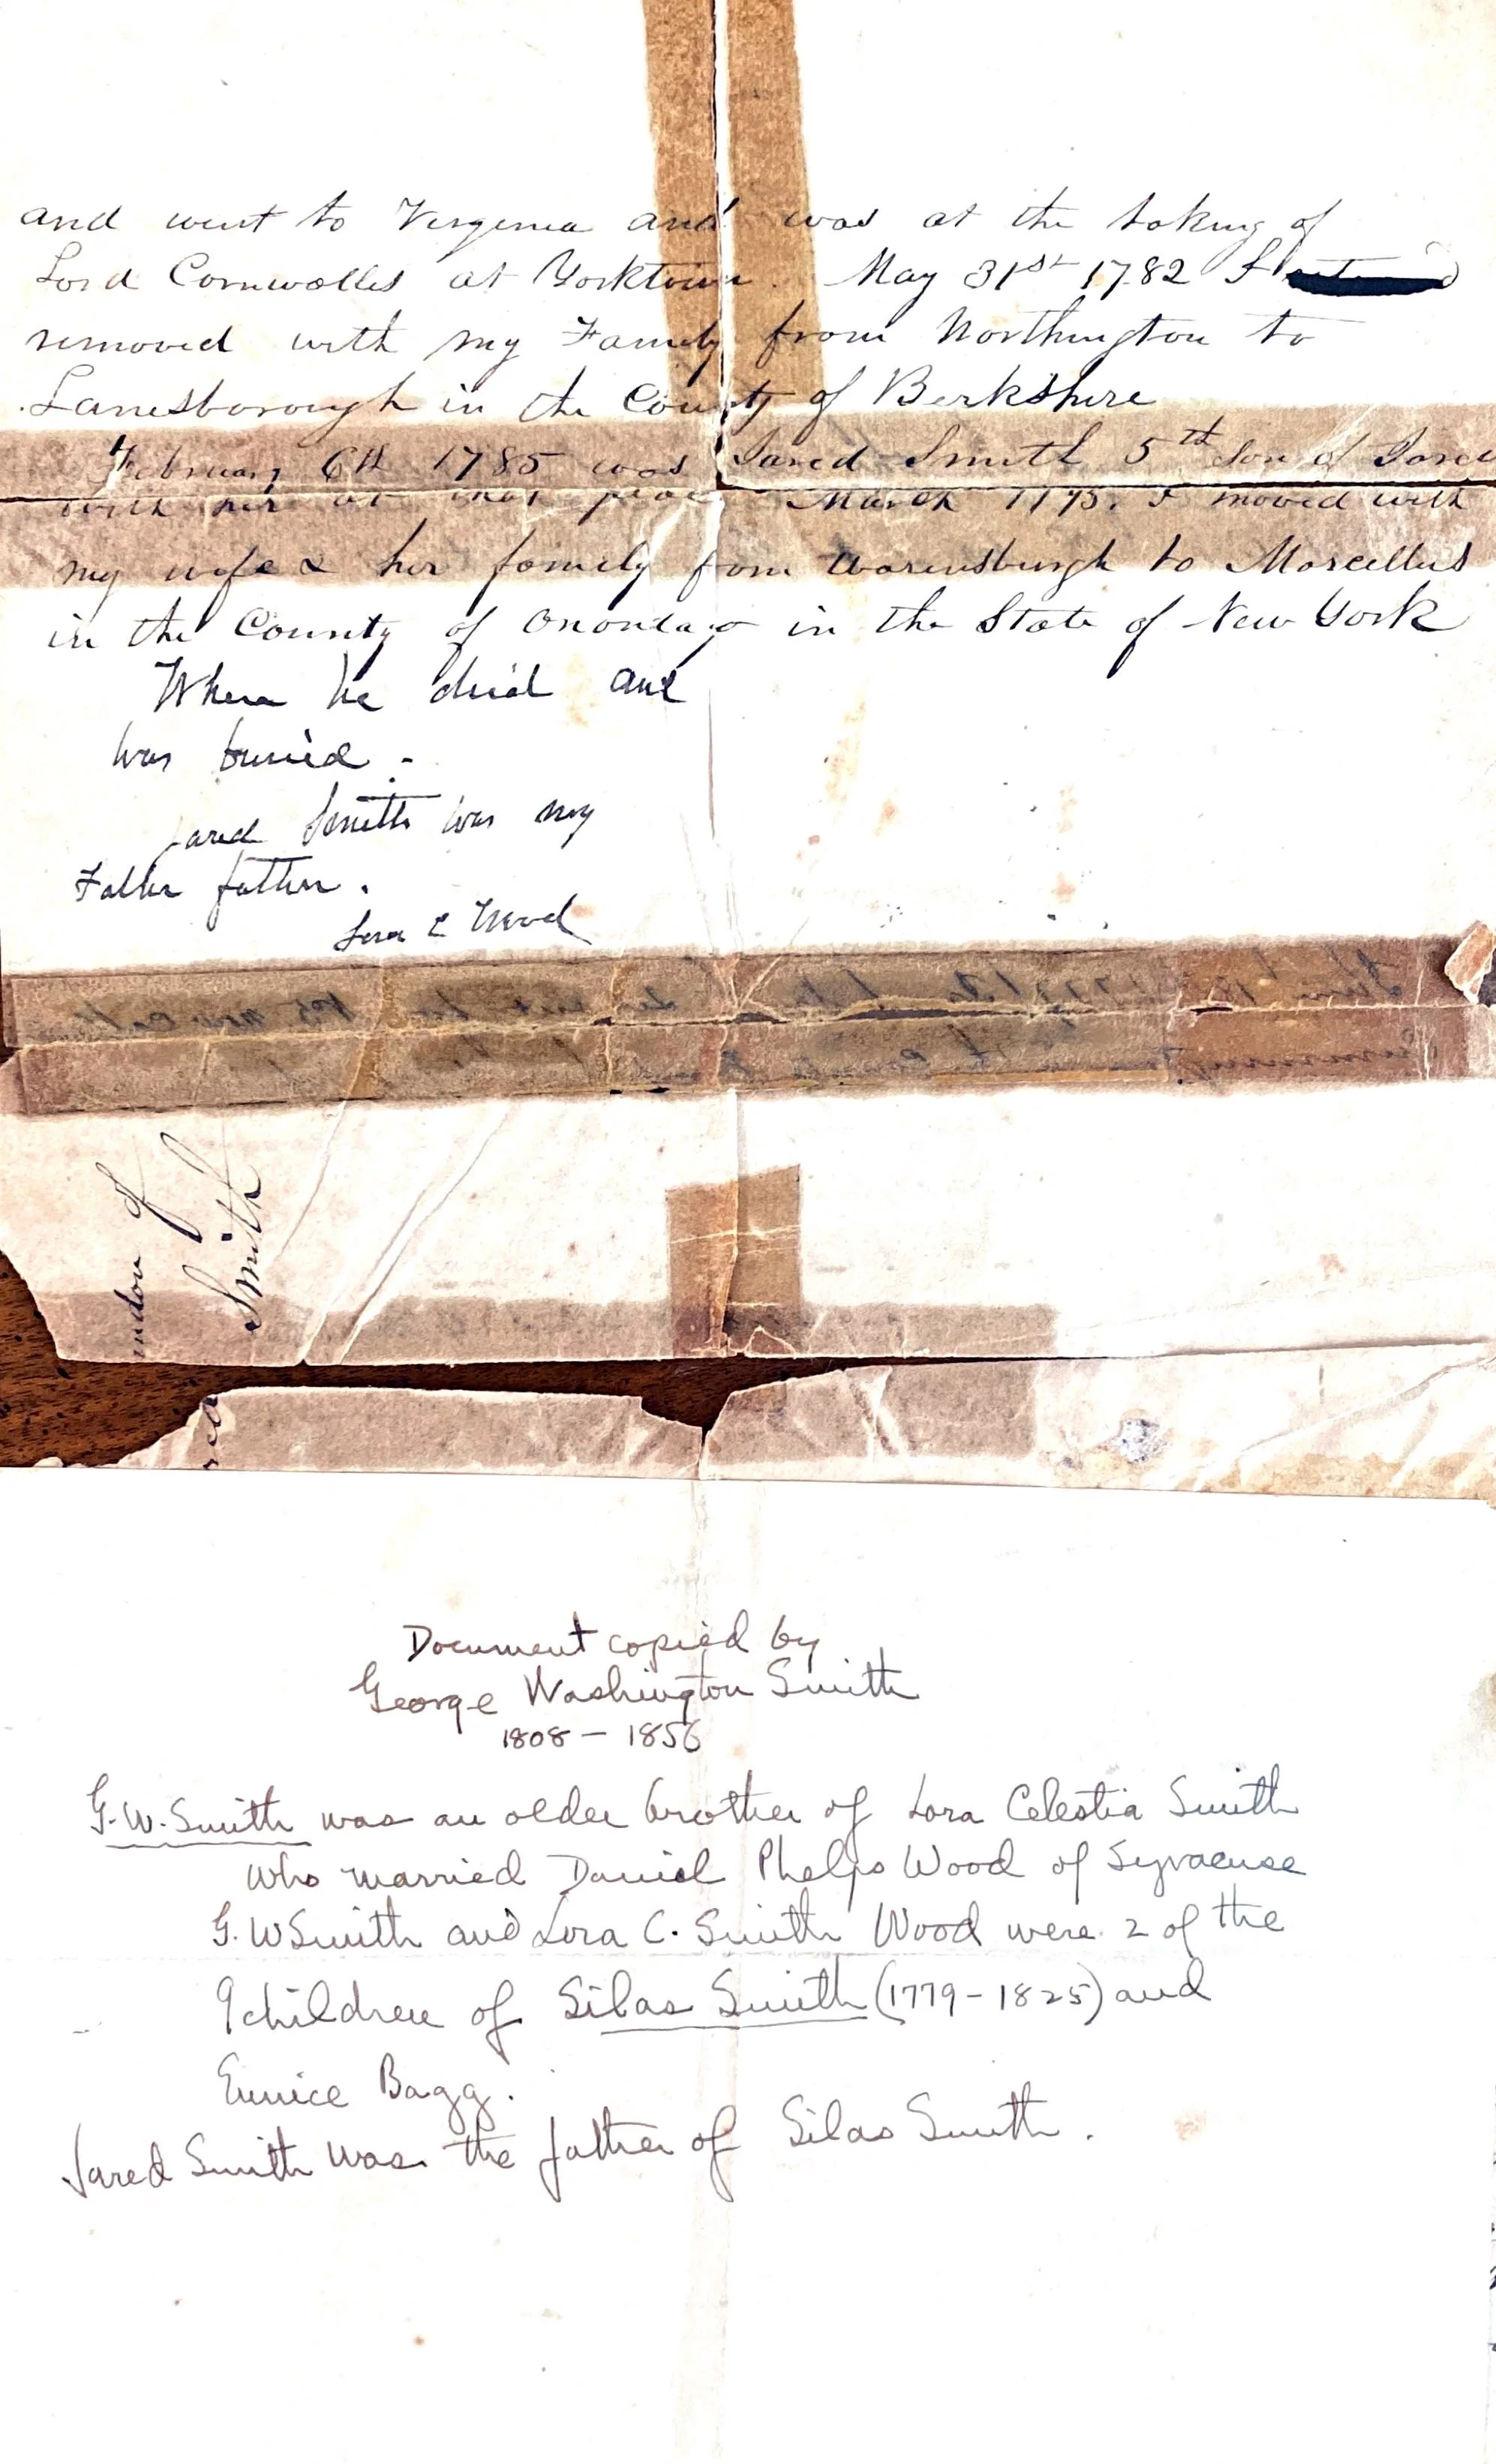 and went to Virginia and was at the taking of
Lord Cornwallis at Yorktown. May 31st 1782 I
removed with my Family from Worthington to
Lanesborough in the County of Berkshire
February 6th 1785 was Jared Smith 5th Son of Jared
with her at that place March 1795. I moved with
my wife & her family from Warensburgh to Marcellus
in the County of Onondago in the State of New York
Where he died and
was buried -
Jared Smith was my
Father father.
Lora C Wood
of
Smith
Document copied by
George Washington Smith
1808 - 1856
G. W. Smith was an older brother of Lora Celestia Smith
who married Daniel Phelps Wood of Syracuse
G. W Smith and Lora C. Smith Wood were 2 of the
9 children of Silas Smith (1779-1825) and
Eunice Bagg.
Jared Smith was the father of Silas Smith.